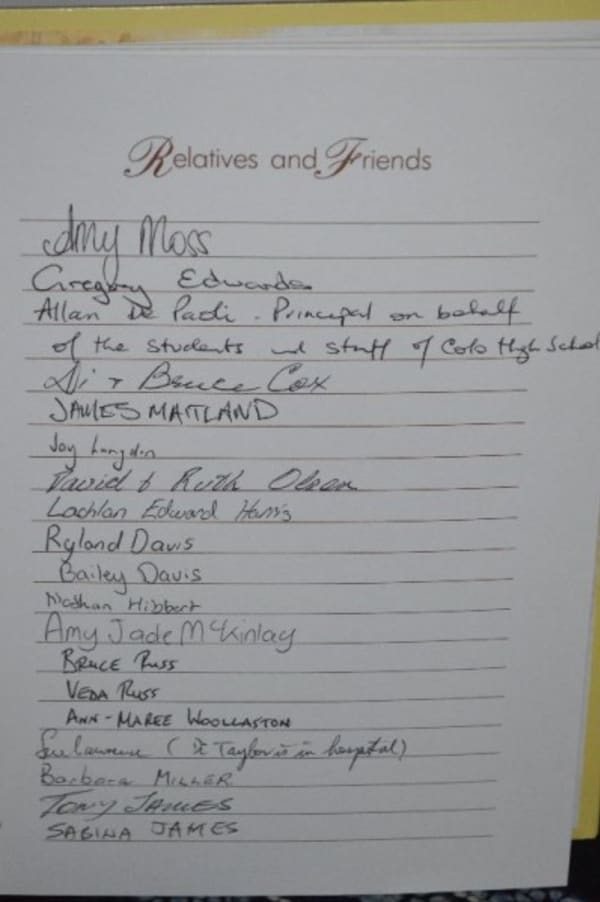 Relatives and Friends
Amy Moss
Gregory Edwards
Allan De Padi - Principal on behalf
of the students and staff of Colo High School
Di + Bruce Cox
JAMES MAITLAND
Joy Langdon
David & Ruth Olsen
Lachlan Edward Harris
Ryland Davis
Bailey Davis
Nathan Hibbert
Amy Jade McKinlay
BRUCE RUSS
VEDA RUSS
ANN-MAREE WOOLLASTON
Sue Lawrence ( Taylor is in hospital)
Barbara MILLER
TONY JAMES
SABINA JAMES